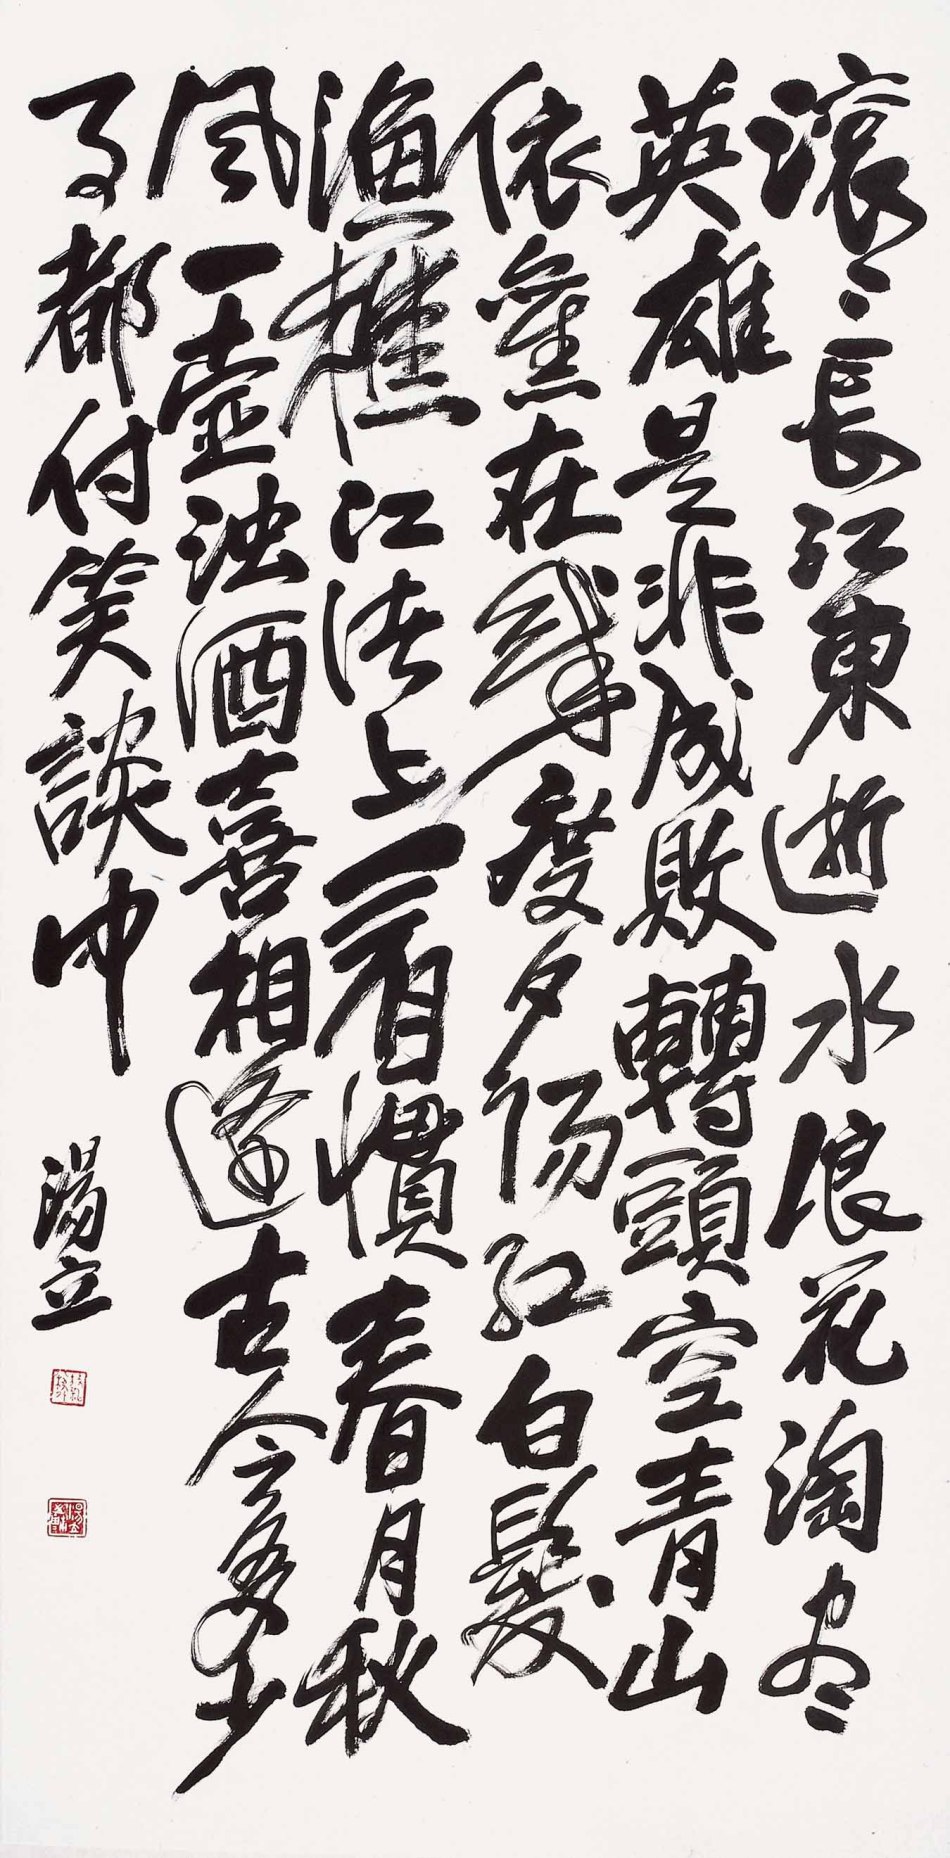 滾々長江東逝水浪花淘尽
英雄是非成敗轉頭空青山
依舊在幾度夕陽紅白髮
漁樵江渚上看慣春月秋
風一壺浊酒喜相逢古今多少
事都付笑談中
湯立